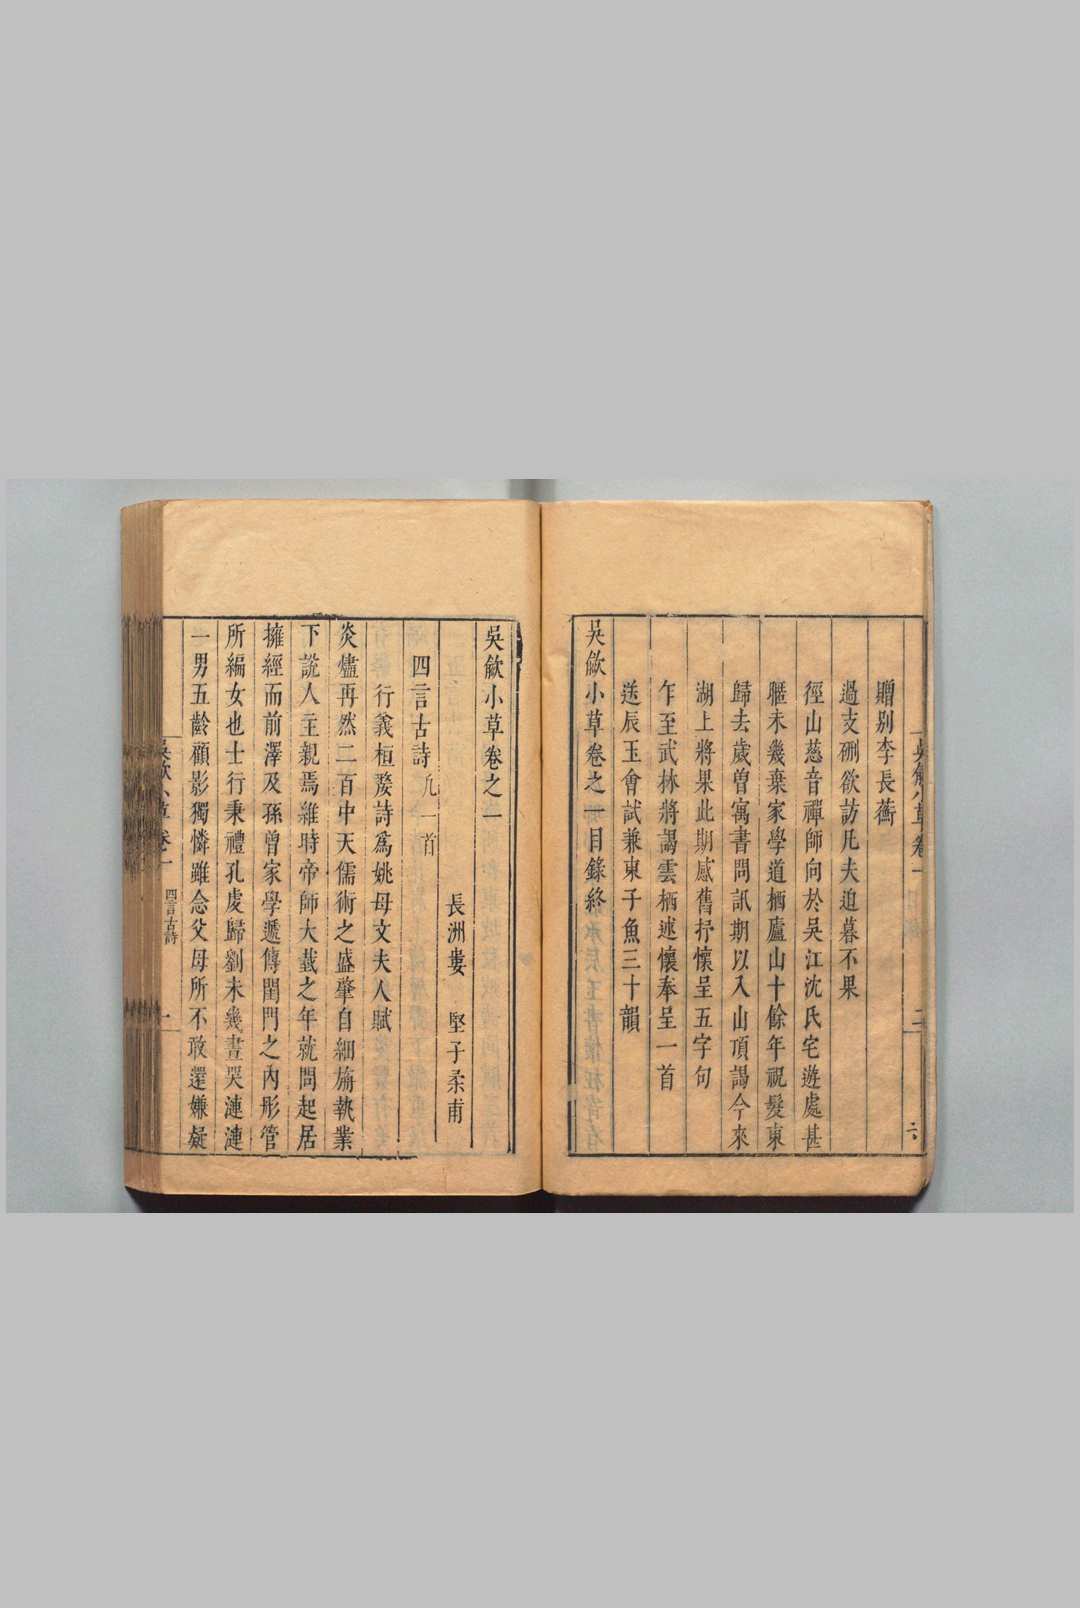 吳歈小草卷一
二
六
贈别李長蘅
過支硎欲訪凡夫迫暮不果
徑山慈音禪師向於吳江沈氏宅遊處甚
暱未幾棄家學道栖廬山十餘年祝髮東
歸去歲曾寓書問訊期以入山頂謁今來
湖上將果此期感舊抒懷呈五字句
乍至武林將謁雲栖述懷奉呈一首
送辰玉會試兼柬子魚三十韻
吳歈小草卷之一目錄終
吳歈小草卷之一
長洲婁堅子柔甫
四言古詩凡一首
行義桓嫠詩爲姚母文夫人賦
炎燼再然二百中天儒術之盛肇自細旃執業
下說人主親焉維時帝師大耋之年就問起居
擁經而前澤及孫曾家學遞傳閨門之內彤管
所編女也士行秉禮孔虔歸劉未幾晝哭漣漣
一男五齡顧影獨憐雖念父母所不敢還嫌疑
吳歈小草卷一
四言古詩
一